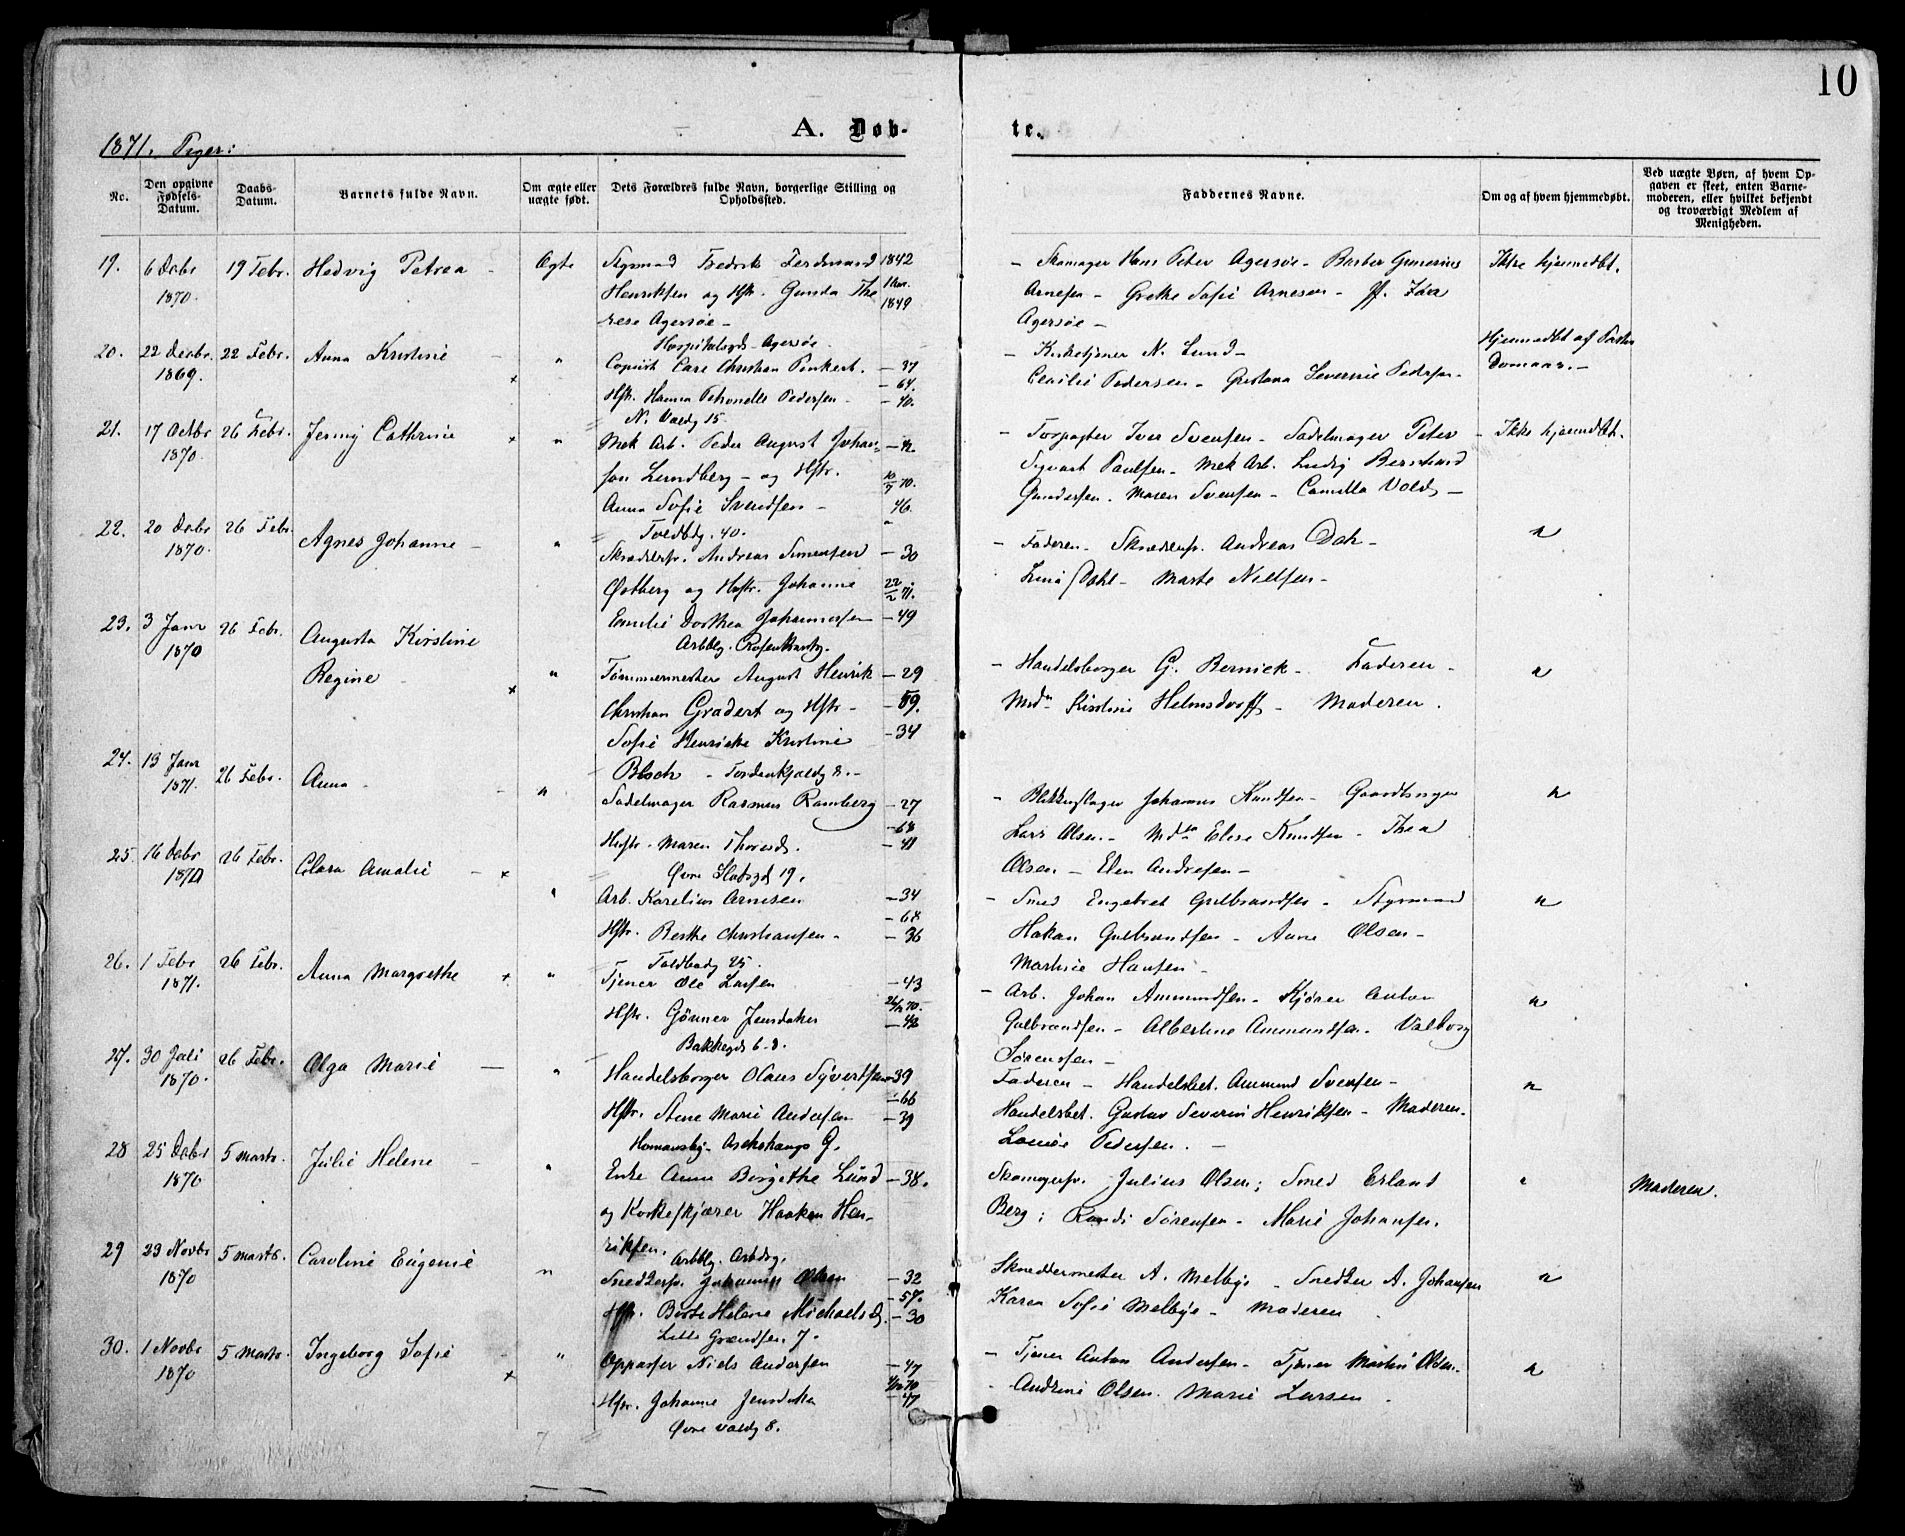 10
1871. Piger:
A. Døb-
te.
No.
Den opgivne Fødsels-Datum.
Daabs-Datum.
Barnets fulde Navn.
Om ægte eller uægte født.
Dets Forældres fulde Navn, borgerlige Stilling og Opholdssted.
Faddernes Navne.
Om og af hvem hjemmedøbt.
Ved uægte Børn, af hvem Opgaven er skeet, enten Barnemoderen, eller hvilket bekjendt og troværdigt Medlem af Menigheden.
19. 6 Debr 1870. 19 Febr. Hedvig Petrea - Ægte
Fredrik Ferdinand 1842
Henriksen og Hstr. Gunda The
1849
rese Agersøe -
Agersøe
- Skomager Hans Peter Agersøe - Gunerius
Arnesen - Grethe Sofie Arnesen -
Agersøe -
Ikke hjemmedbt.
20. 22 Decbr. 1869. 22 Febr. Anna Kristine - "
Copiist Carl Christian Pinkert. - 37
- 64.
Hstr. Hanna Petronelle Pedersen - - 40.
N. Voldg 15
- Kirketjener N. Lund -
Cecilie Pedersen - Severine Pedersen -
Hjemmedbt af Pastor
21. 17 Octbr 1870. 26 Febr. Jenny Cathrine "
Mek Arb. Peder August Johan-
sen Lundberg - og Hstr.
Anna Sofie Svendsen - 46.
Toldbdg. 40.
- Iver Svensen - Sadelmager Peter
Sigvart Paulsen - Mek Arb. Ludvig Bernhard
Gundersen. Maren Svensen - Camilla Vold -
- Ikke hjemdbt.
22. 20 Debr 1870. 26 Febr. Agnes Johanne - "
Skrædersv. Andreas Simensen - 30
Østberg og Hstr. Johanne 22/2 71.
Emilie Dorthea Johannesen - 49
Arbbg. Rosenkrantzg.
- Faderen - Skrædersv. Andreas Dah -
Lina Dahl - Marte Nielsen -
"
23. 3 Janr 1870 26 Febr. Augusta Kirstine
Regine "
Tømmermester August Henrik - 29
Christian Gradert og Hstr - - 59.
Sofie Henriette Kristine - 34
Bloch - Tordenskjoldg 8. -
- Handelsborger G. Bernick - Faderen -
Mdm Kirstine Helmsdorff - Moderen.
"
24. 13 Janr 1871. 26 Febr. Anna - "
Sadelmager Rasmus Ramberg - 27
- 68
Hustr. Maren Thoresd. - 41
Øvre Slotsgd 19.
- Blikkenslager Johannes Knudsen - Gaardbruger
Lars Olsen - Mdm Elise Knudsen - Thea
Olsen - Elen Andresen -
"
25. 16 Debr 1870 26 Febr. Clara Amalie - "
Arb. Karelius Arnesen - 34
- 68
Hstr. Berthe Christiansen - - 36
Toldbodg 25.
- Smed Engebret Gulbrandsen - Styrmand
Hakan Gulbrandsen - Anne Olsen -
Martine Hansen -
"
26. 1 Febr 1871. 26 Febr. Anna Margrethe "
Tjener Ole Larsen - 43
Hstr. Gønner Jensdatter - 42
Bakkegd 6-8.
- Arb. Johan Ammundsen - Kjører Anton
Gulbrandsen - Albertine Ammundsen - Valborg
Sørensen -
"
27. 30 Juli 1870. 26 Febr. Olga Marie - "
Handelsborger Olaus Syvertsen - 39
- 66
Hstr. Anne Marie Andersen - 39
Homansby - Aschehougs G.
Faderen - Handelsbet. Ammund Svensen -
Handelsbet. Gustav Severin Henriksen - Moderen.
Lovise Pedersen. -
"
28 25 Debr 1870 5 Marts. Julie Helene - "
Enke Anne Birgithe Lund - 38.
og Korkeskjærer Haaken Hen-
riksen. Arbbg. Arbdsg.
Skomagersv. Julius Olsen; Smed Erland
Berg; Randi Sørensen - Marie Johansen.
"
Moderen.
29 23 Novbr 1870 5 Marts. Caroline Eugenie "
Snedkersv. Johannes Olsen - 32
- 57.
Hstr. Berte Helene Michaelsd. - 30
Lille Grændsen 7.
Skreddermester A. Melbye - Snedker A. Johansen
Karen Sofie Melbye - Moderen
"
30. 1 Novbr 1870 5 Marts. Ingeborg Sofie - "
Oppasser Niels Andersen - 47
Hstr. Johanne Jensdatter - 47
Øvre Voldg 8.
- Tjener Anton Andersen - Tjener Martin Olsen.
- Andrine Olsen. Marie Larsen.
"